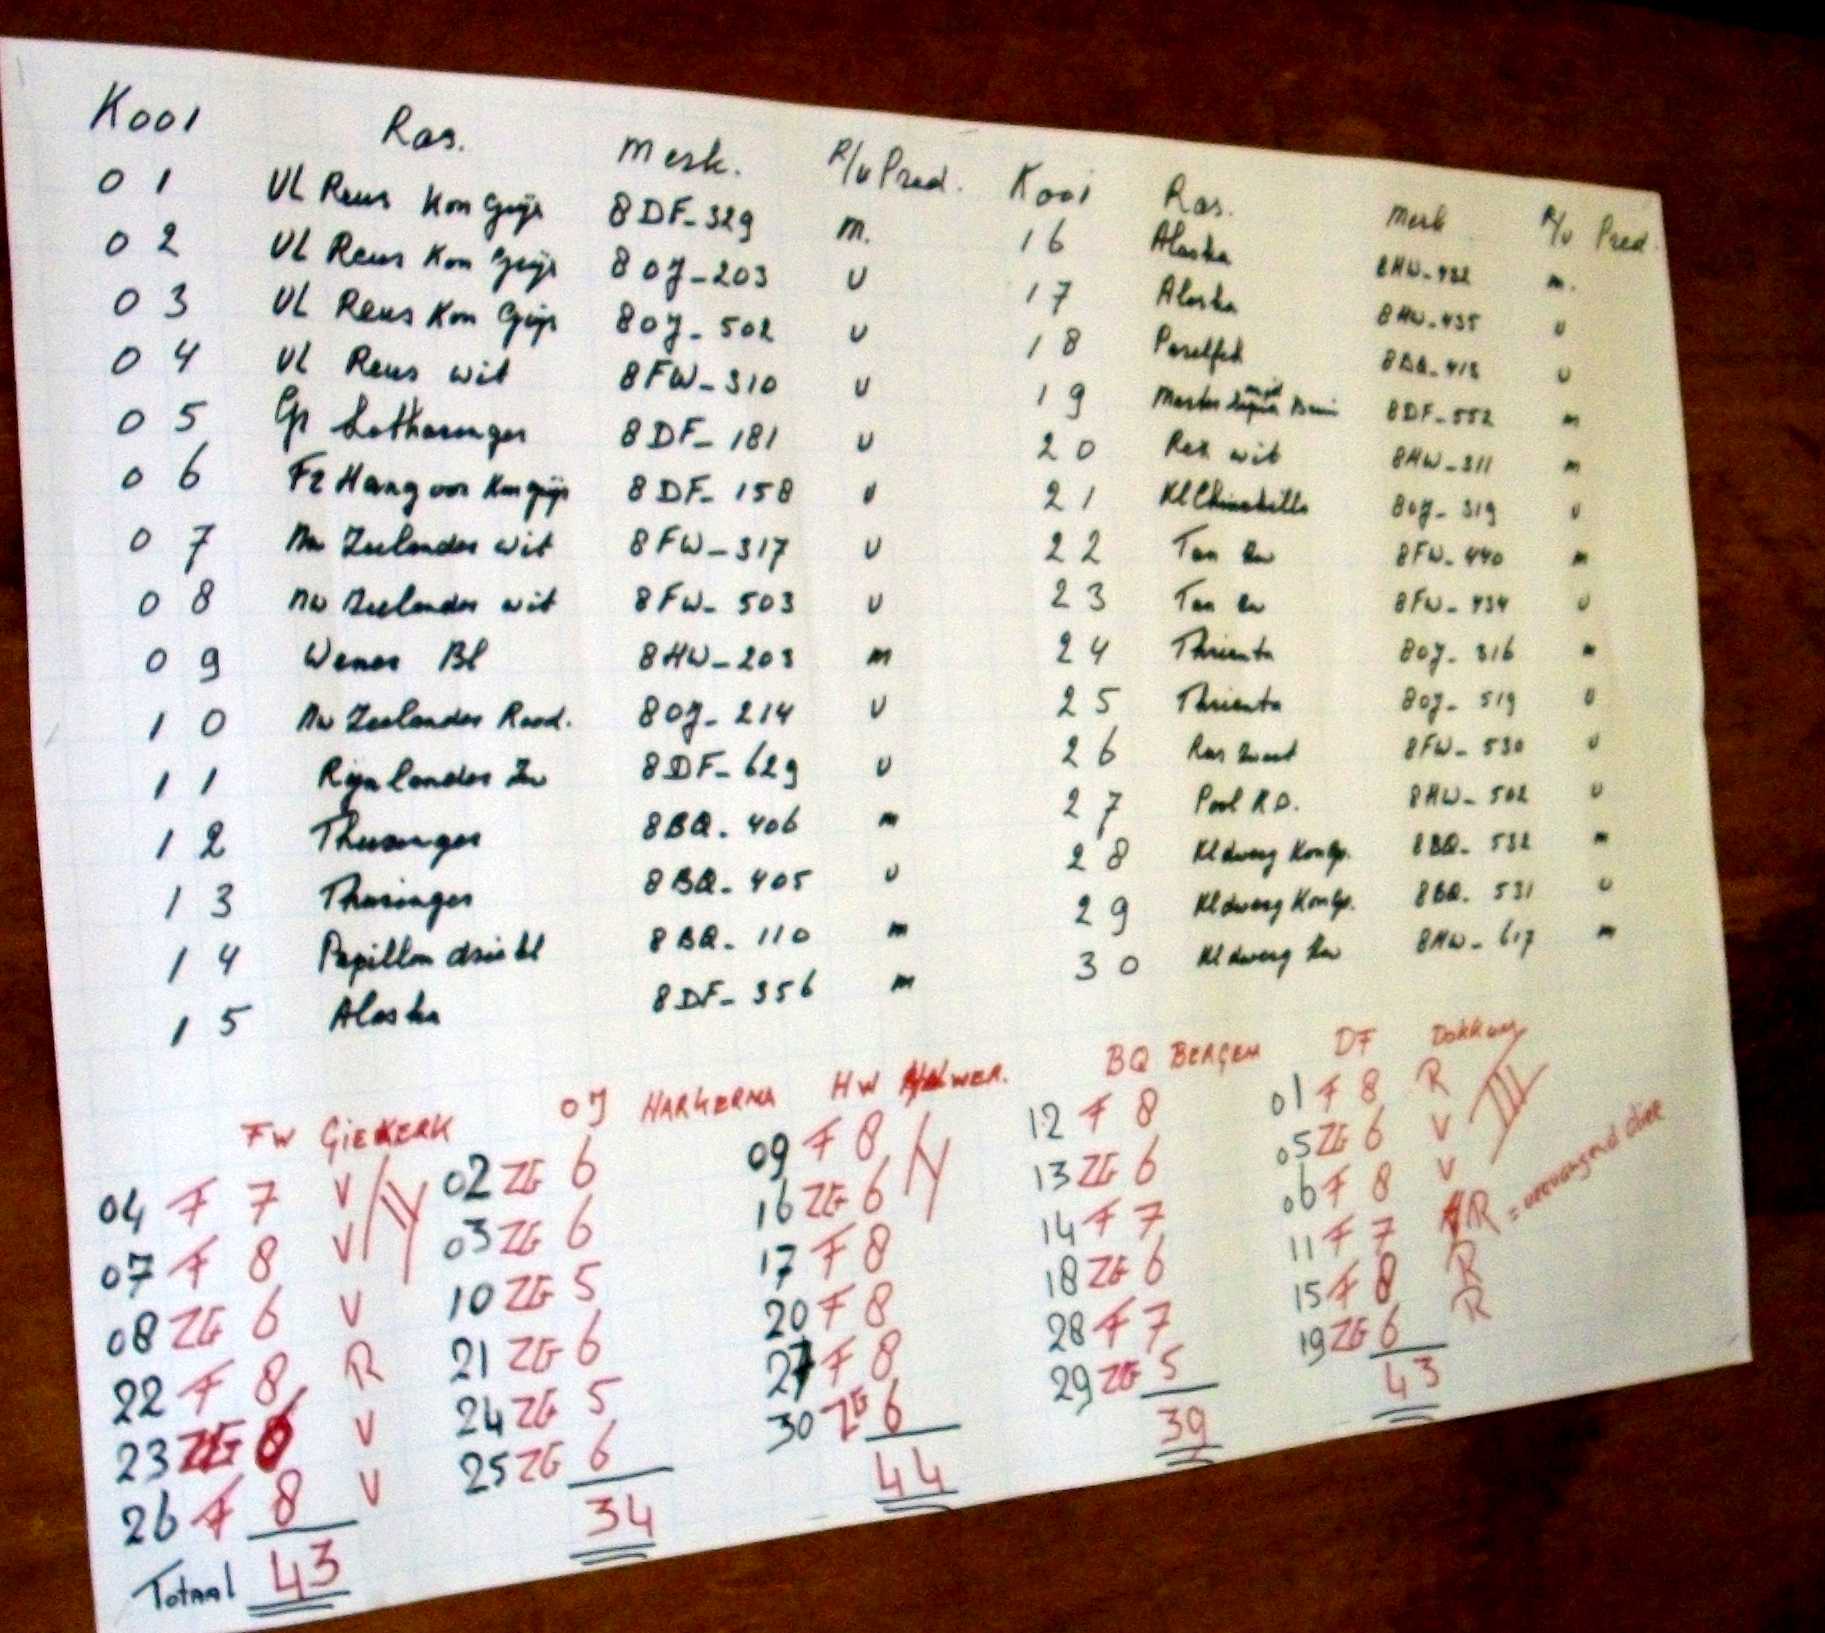 Kooi Ras. Merk. R/V Pred. Kooi Ras. Merk R/V Pred.
01 VL Reus Kon Grijs 8DF-329 m. 16 Alaska 8HW-432 m.
02 VL Reus Kon Grijs 8OJ-203 v 17 Alaska 8HW-435 v
03 VL Reus Kon Grijs 8OJ-502 v 18 Parelfeh 8BQ-413 v
04 VL Reus wit 8FW-310 v 19 Marter Bruin 8DF-552 m
05 Gr Lotharinger 8DF-181 v 20 Rex wit 8HW-311 m
06 Fr Hangoor Kon grijs 8DF-158 v 21 Kl Chinchilla 8OJ-319 v
07 Nw Zeelander wit 8FW-317 v 22 Tan Zw 8FW-440 m
08 Nw Zeelander wit 8FW-503 v 23 Tan Zw 8FW-434 v
09 Wener Bl 8HW-203 m 24 Thrianta 8OJ-316 m
10 Nw Zeelander Rood. 8OJ-214 v 25 Thrianta 8OJ-519 v
11 Rijnlander Zw 8DF-629 v 26 Zwart 8FW-530 v
12 Thuringer 8BQ-406 m 27 Pool R.O. 8HW-502 v
13 Thuringer 8BQ-405 v 28 Kl dwerg Kon Gr. 8BQ-532 m
14 Papillon driekl 8BQ-110 m 29 Kl dwerg Kon Gr. 8BQ-531 v
15 Alaska 8DF-356 m 30 Kl dwerg Zw 8HW-617 m
FW GIEKERK
04 F 7 V
07 F 8 V
08 ZG 6 V
22 F 8 R
23 ZG 6 V
26 F 8 V
Totaal 43
IV
OJ HARKEMA
02 ZG 6
03 ZG 6
10 ZG 5
21 ZG 6
24 ZG 5
25 ZG 6
34
HW
09 F 8
16 ZG 6
17 F 8
20 F 8
27 F 8
30 ZG 6
44
BQ BERGEM
12 F 8
13 ZG 6
14 F 7
18 ZG 6
28 F 7
29 ZG 5
39
DF DOKKUM
01 F 8 R
05 ZG 6 V
06 F 8 V
11 F 7 R = vervangend dier
15 F 8 R
19 ZG 6 R
43
III